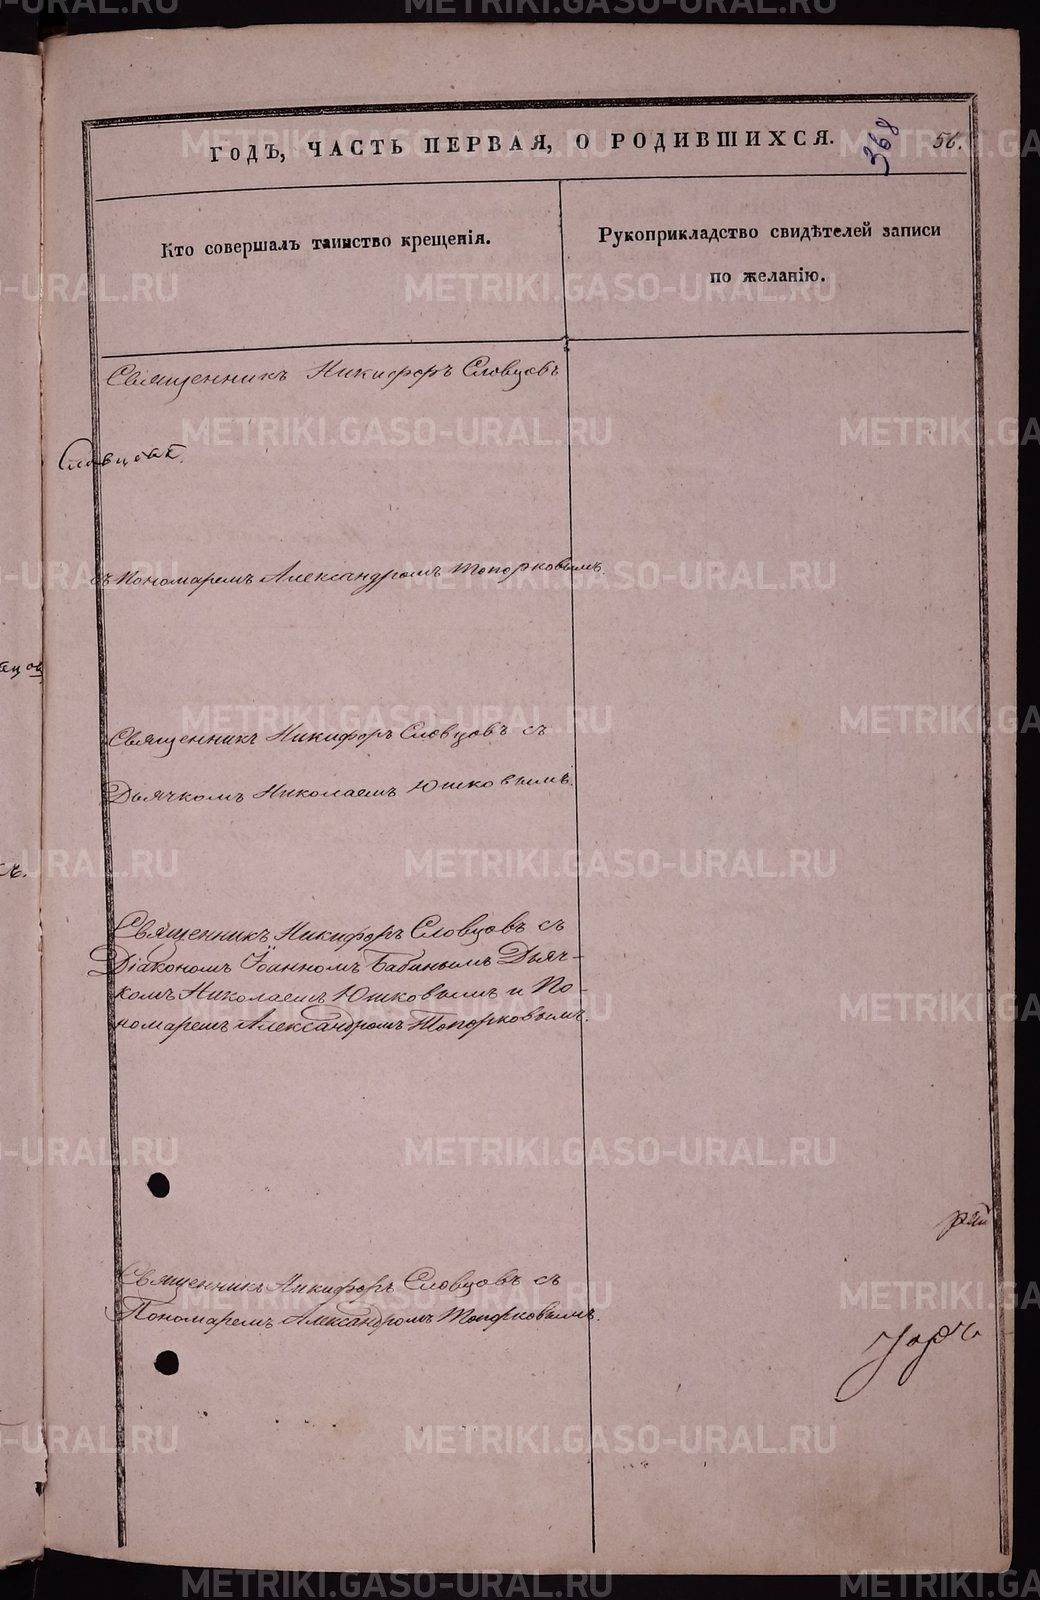 ГОДЪ, ЧАСТЬ ПЕРВАЯ, О РОДИВШИХСЯ.
368
56.
Кто совершалъ таинство крещенія.
Рукоприкладство свидѣтелей записи
по желанію.
Священникъ Никифоръ Словцовъ
Словцовъ.
съ Пономаремъ Александромъ Топорковымъ.
Священникъ Никифоръ Словцовъ съ
Дьячкомъ Николаемъ Юшковымъ.
Священникъ Никифоръ Словцовъ съ
Діакономъ Іоанномъ Бабинымъ Дьяч-
комъ Николаемъ Юшковымъ и По-
номаремъ Александромъ Топорковымъ.
Священникъ Никифоръ Словцовъ съ
Пономаремъ Александромъ Топорковымъ.
METRIKI.GASO-URAL.RU